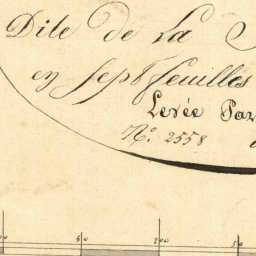 Dite de La
en Sept feuilles
Levée Par
No. 2558